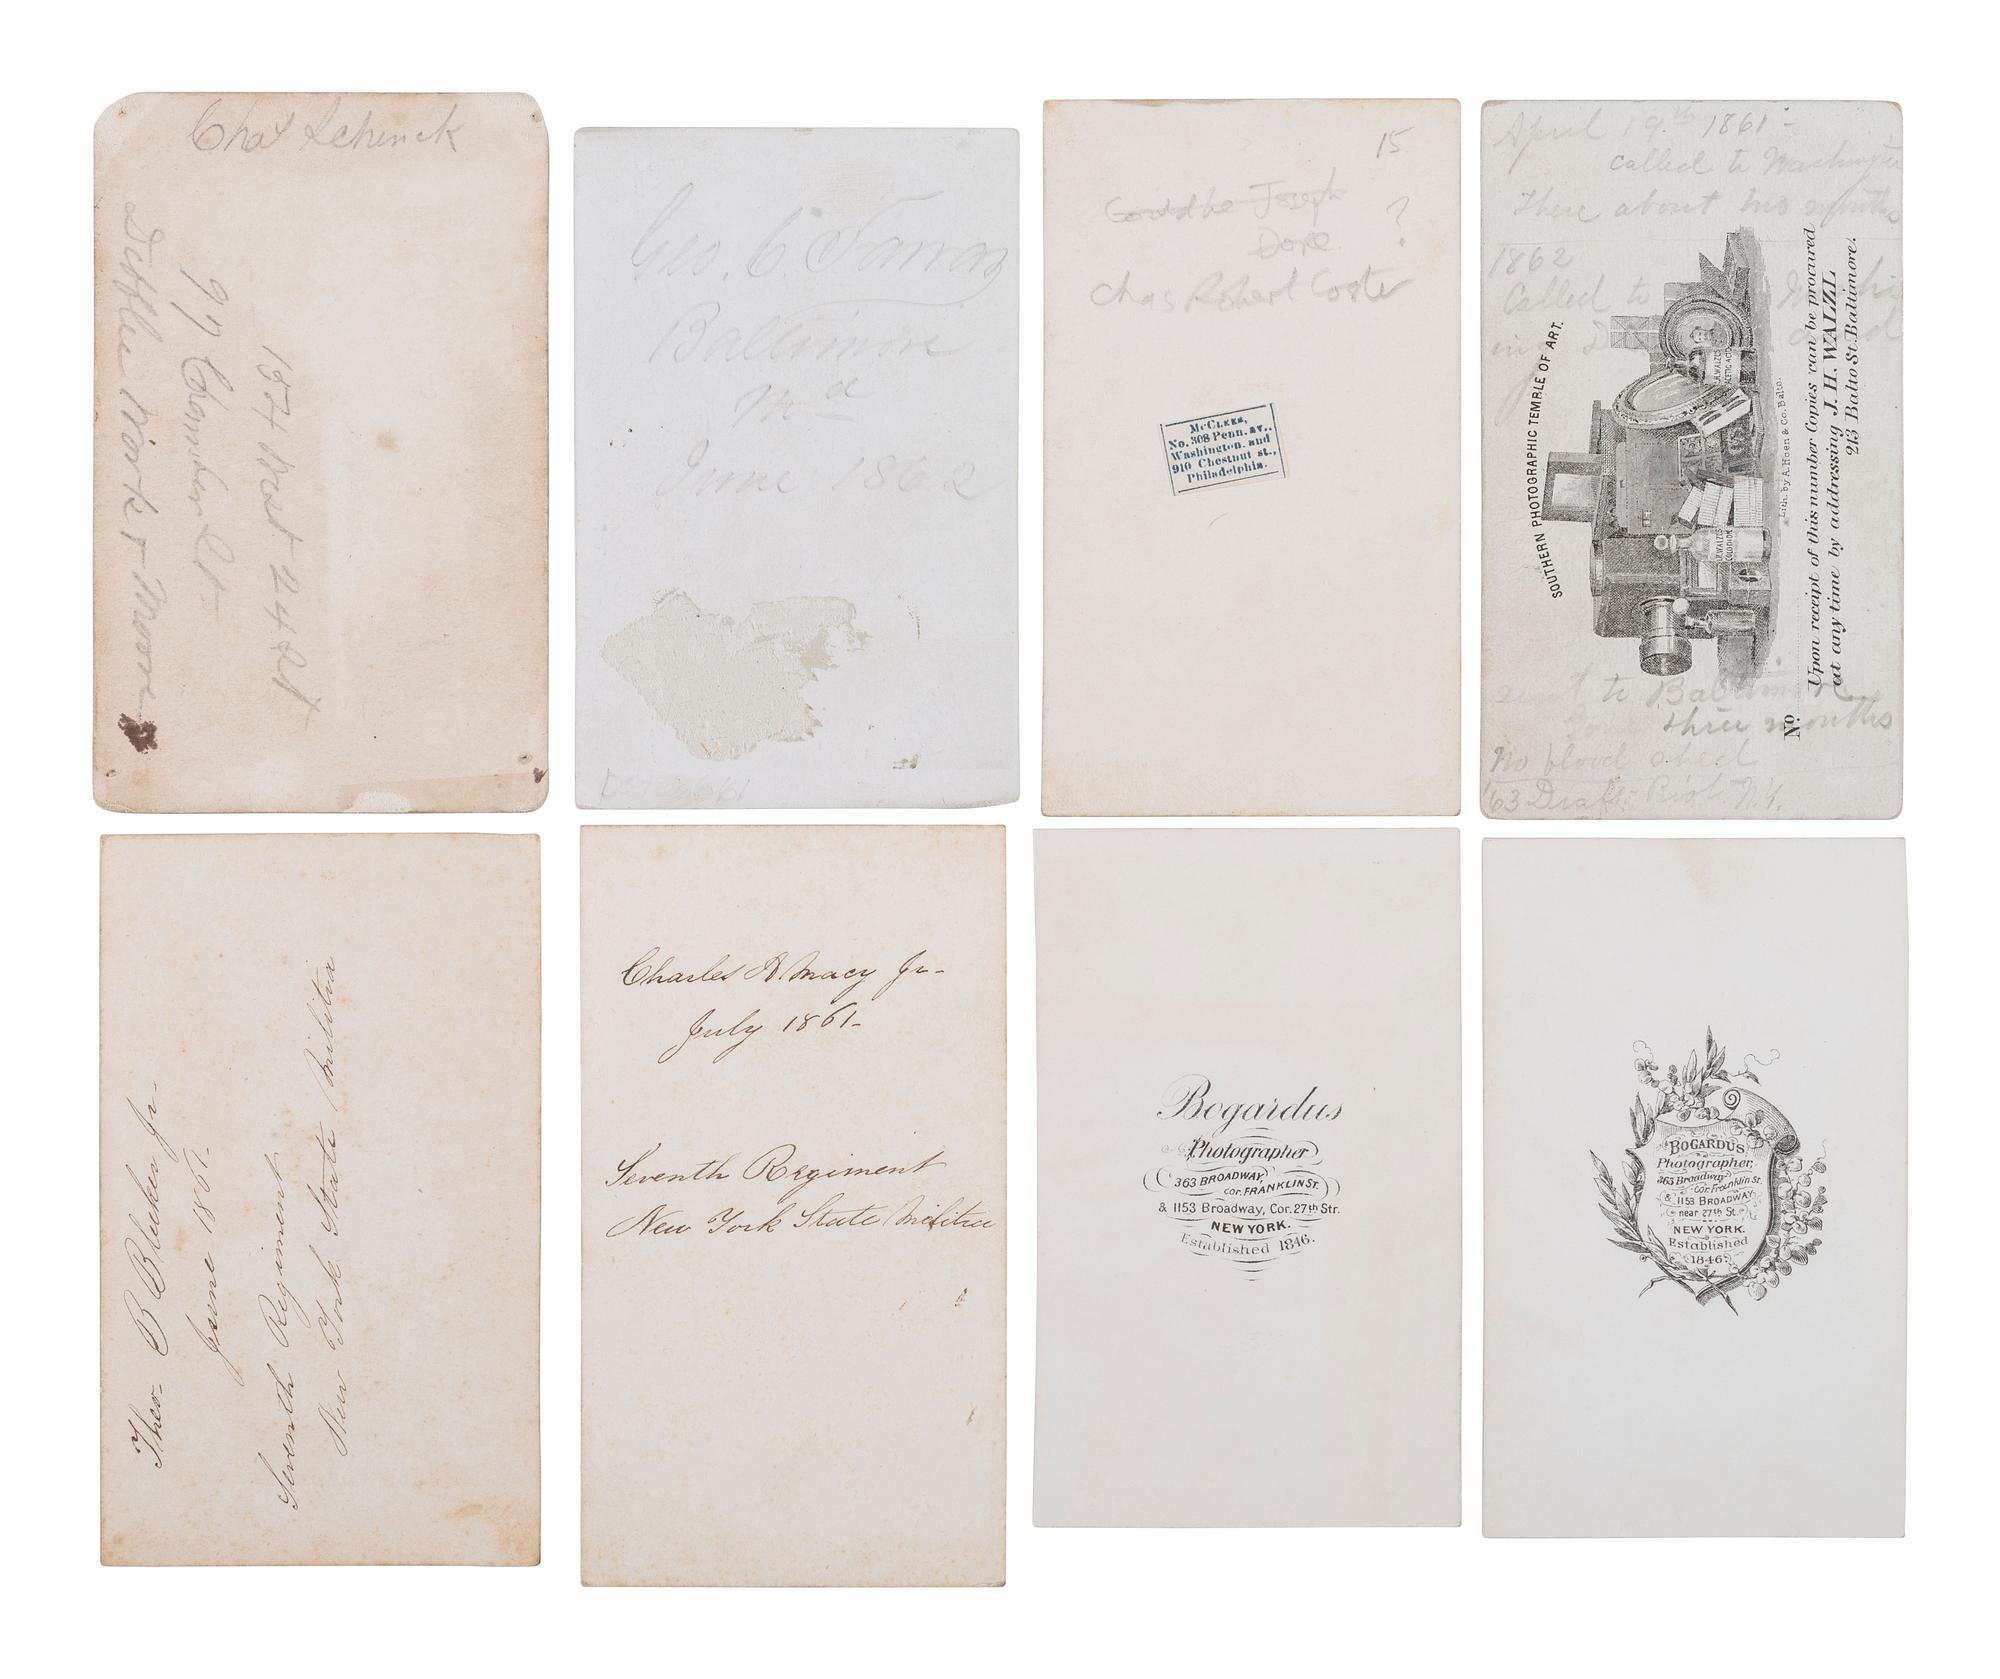 Chas Schenck
97 Chambers St
154 West 24 St
Geo. C. Farrar
Baltimore
Md
June 1862
15
Joseph
Dore ?
Chas Robert Coster
McCLEES,
No. 308 Penn. av.,
Washington, and
910 Chestnut st.,
Philadelphia.
April 19th 1861-
called to Washington
There about two months
1862
Called to
SOUTHERN PHOTOGRAPHIC TEMPLE OF ART.
J.H. WALZL'S
ACETIC ACID
J.H. WALZL'S
COLODION
Lith. by A. Hoen & Co. Balto.
No
Upon receipt of this number Copies can be procured
at any time by addressing J. H. WALZL
213 Balto St. Baltimore.
sent to Baltimore
three months
No blood shed
'63 Draft Riot. N.Y.
Theo- B Bleecker Jr-
June 1861-
Seventh Regiment
New York State Militia
Charles A. Macy Jr-
July 1861-
Seventh Regiment
New York State Militia
Bogardus
Photographer
363 BROADWAY,
cor. FRANKLIN ST.
& 1153 Broadway, Cor. 27th Str.
NEW YORK.
Established 1846.
BOGARDUS
Photographer,
363 Broadway
cor. Franklin St.
& 1153 BROADWAY
near 27th St.
NEW YORK.
Established
1846.